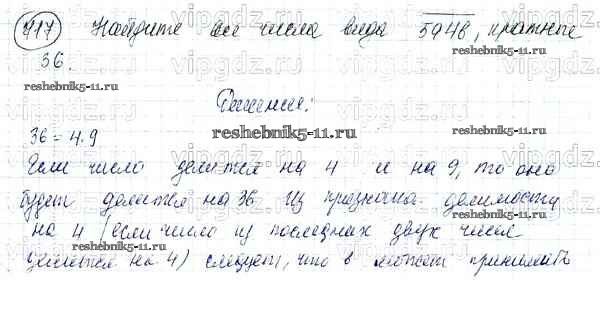 417 Найдите все числа вида 5a4b, кратные
36.
reshebnik5-11.ru
reshebnik5-11.ru
Решение:
reshebnik5-11.ru
36=4·9
Если число делится на 4 и на 9, то оно
будет делится на 36 Из признака делимости
на 4 (если число из последних двух чисел
делится на 4) следует, что в может принимать
reshebnik5-11.ru
reshebnik5-11.ru
vipgdz.ru